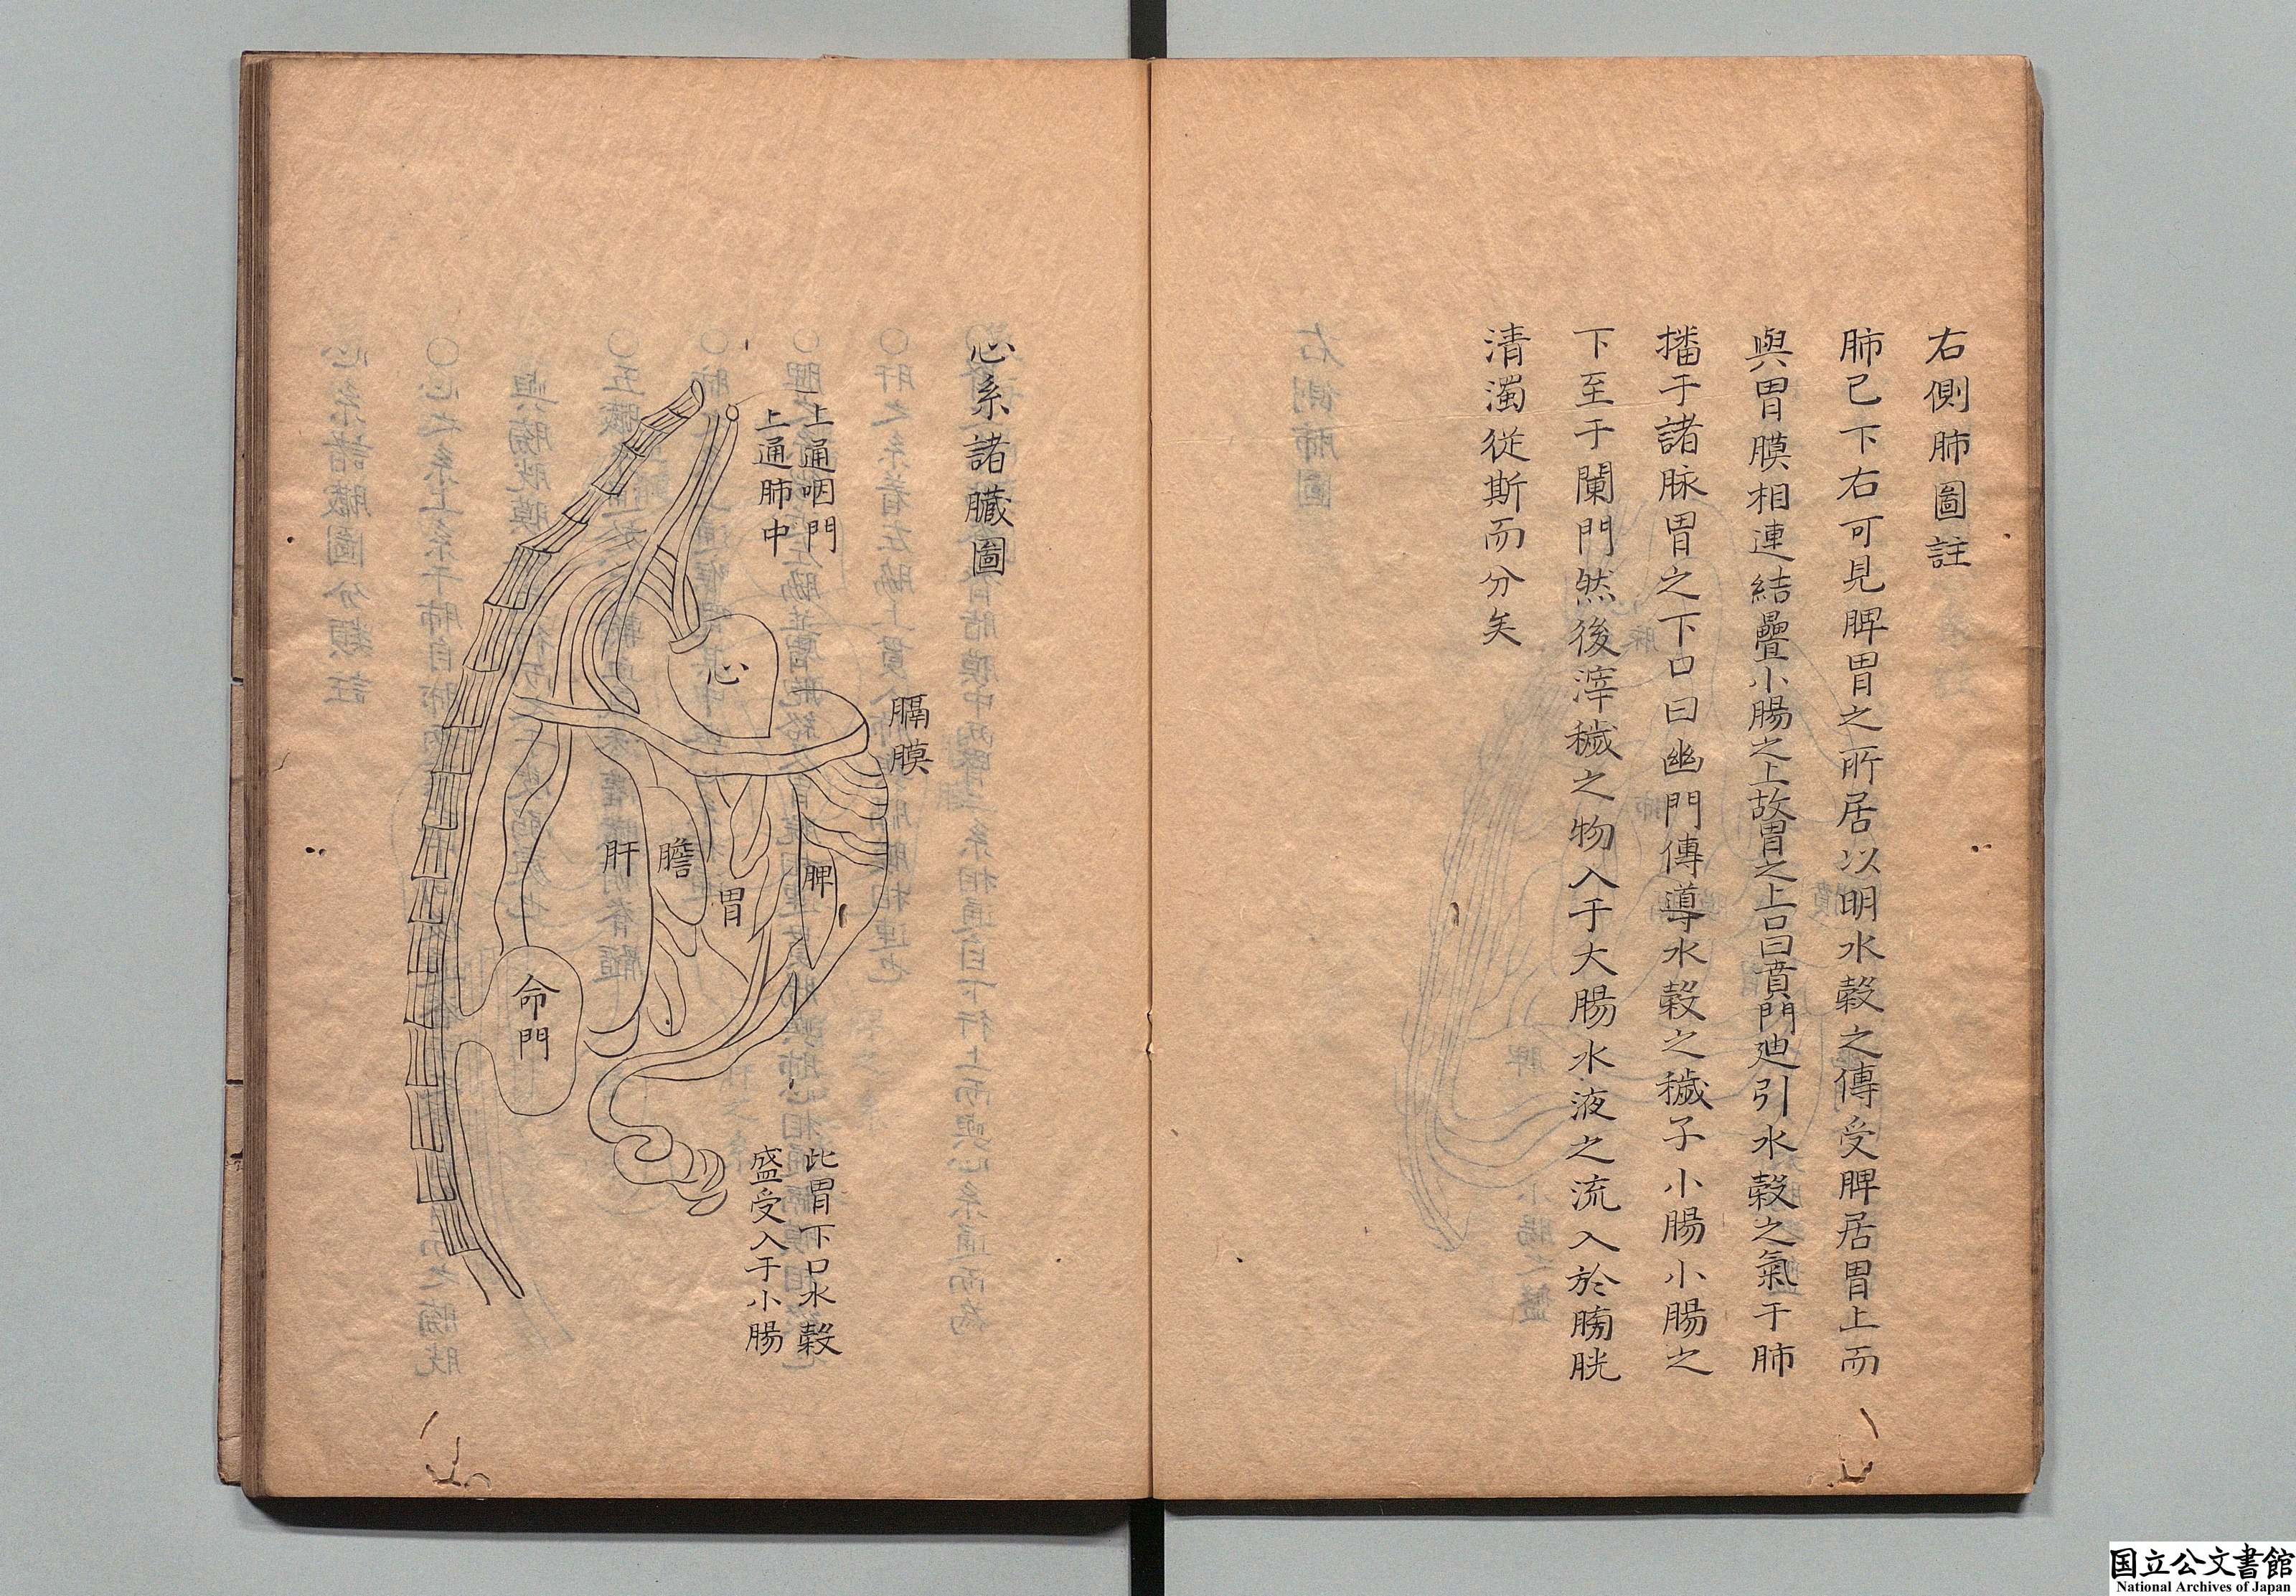 右側肺圖註
肺已下右可見脾胃之所居以明水穀之傳受脾居胃上而
與胃膜相連結疊小腸之上故胃之上口曰賁門廵引水穀之氣于肺
播于諸脉胃之下口曰幽門傳導水穀之穢子小腸小腸之
下至于闌門然後滓穢之物入于大腸水液之流入於膀胱
清濁從斯而分矣
心系諸臟圖
上通咽門
上通肺中
心
膈膜
肝
膽
胃
脾
命門
此胃下口水穀
盛受入于小腸
国立公文書館
National Archives of Japan